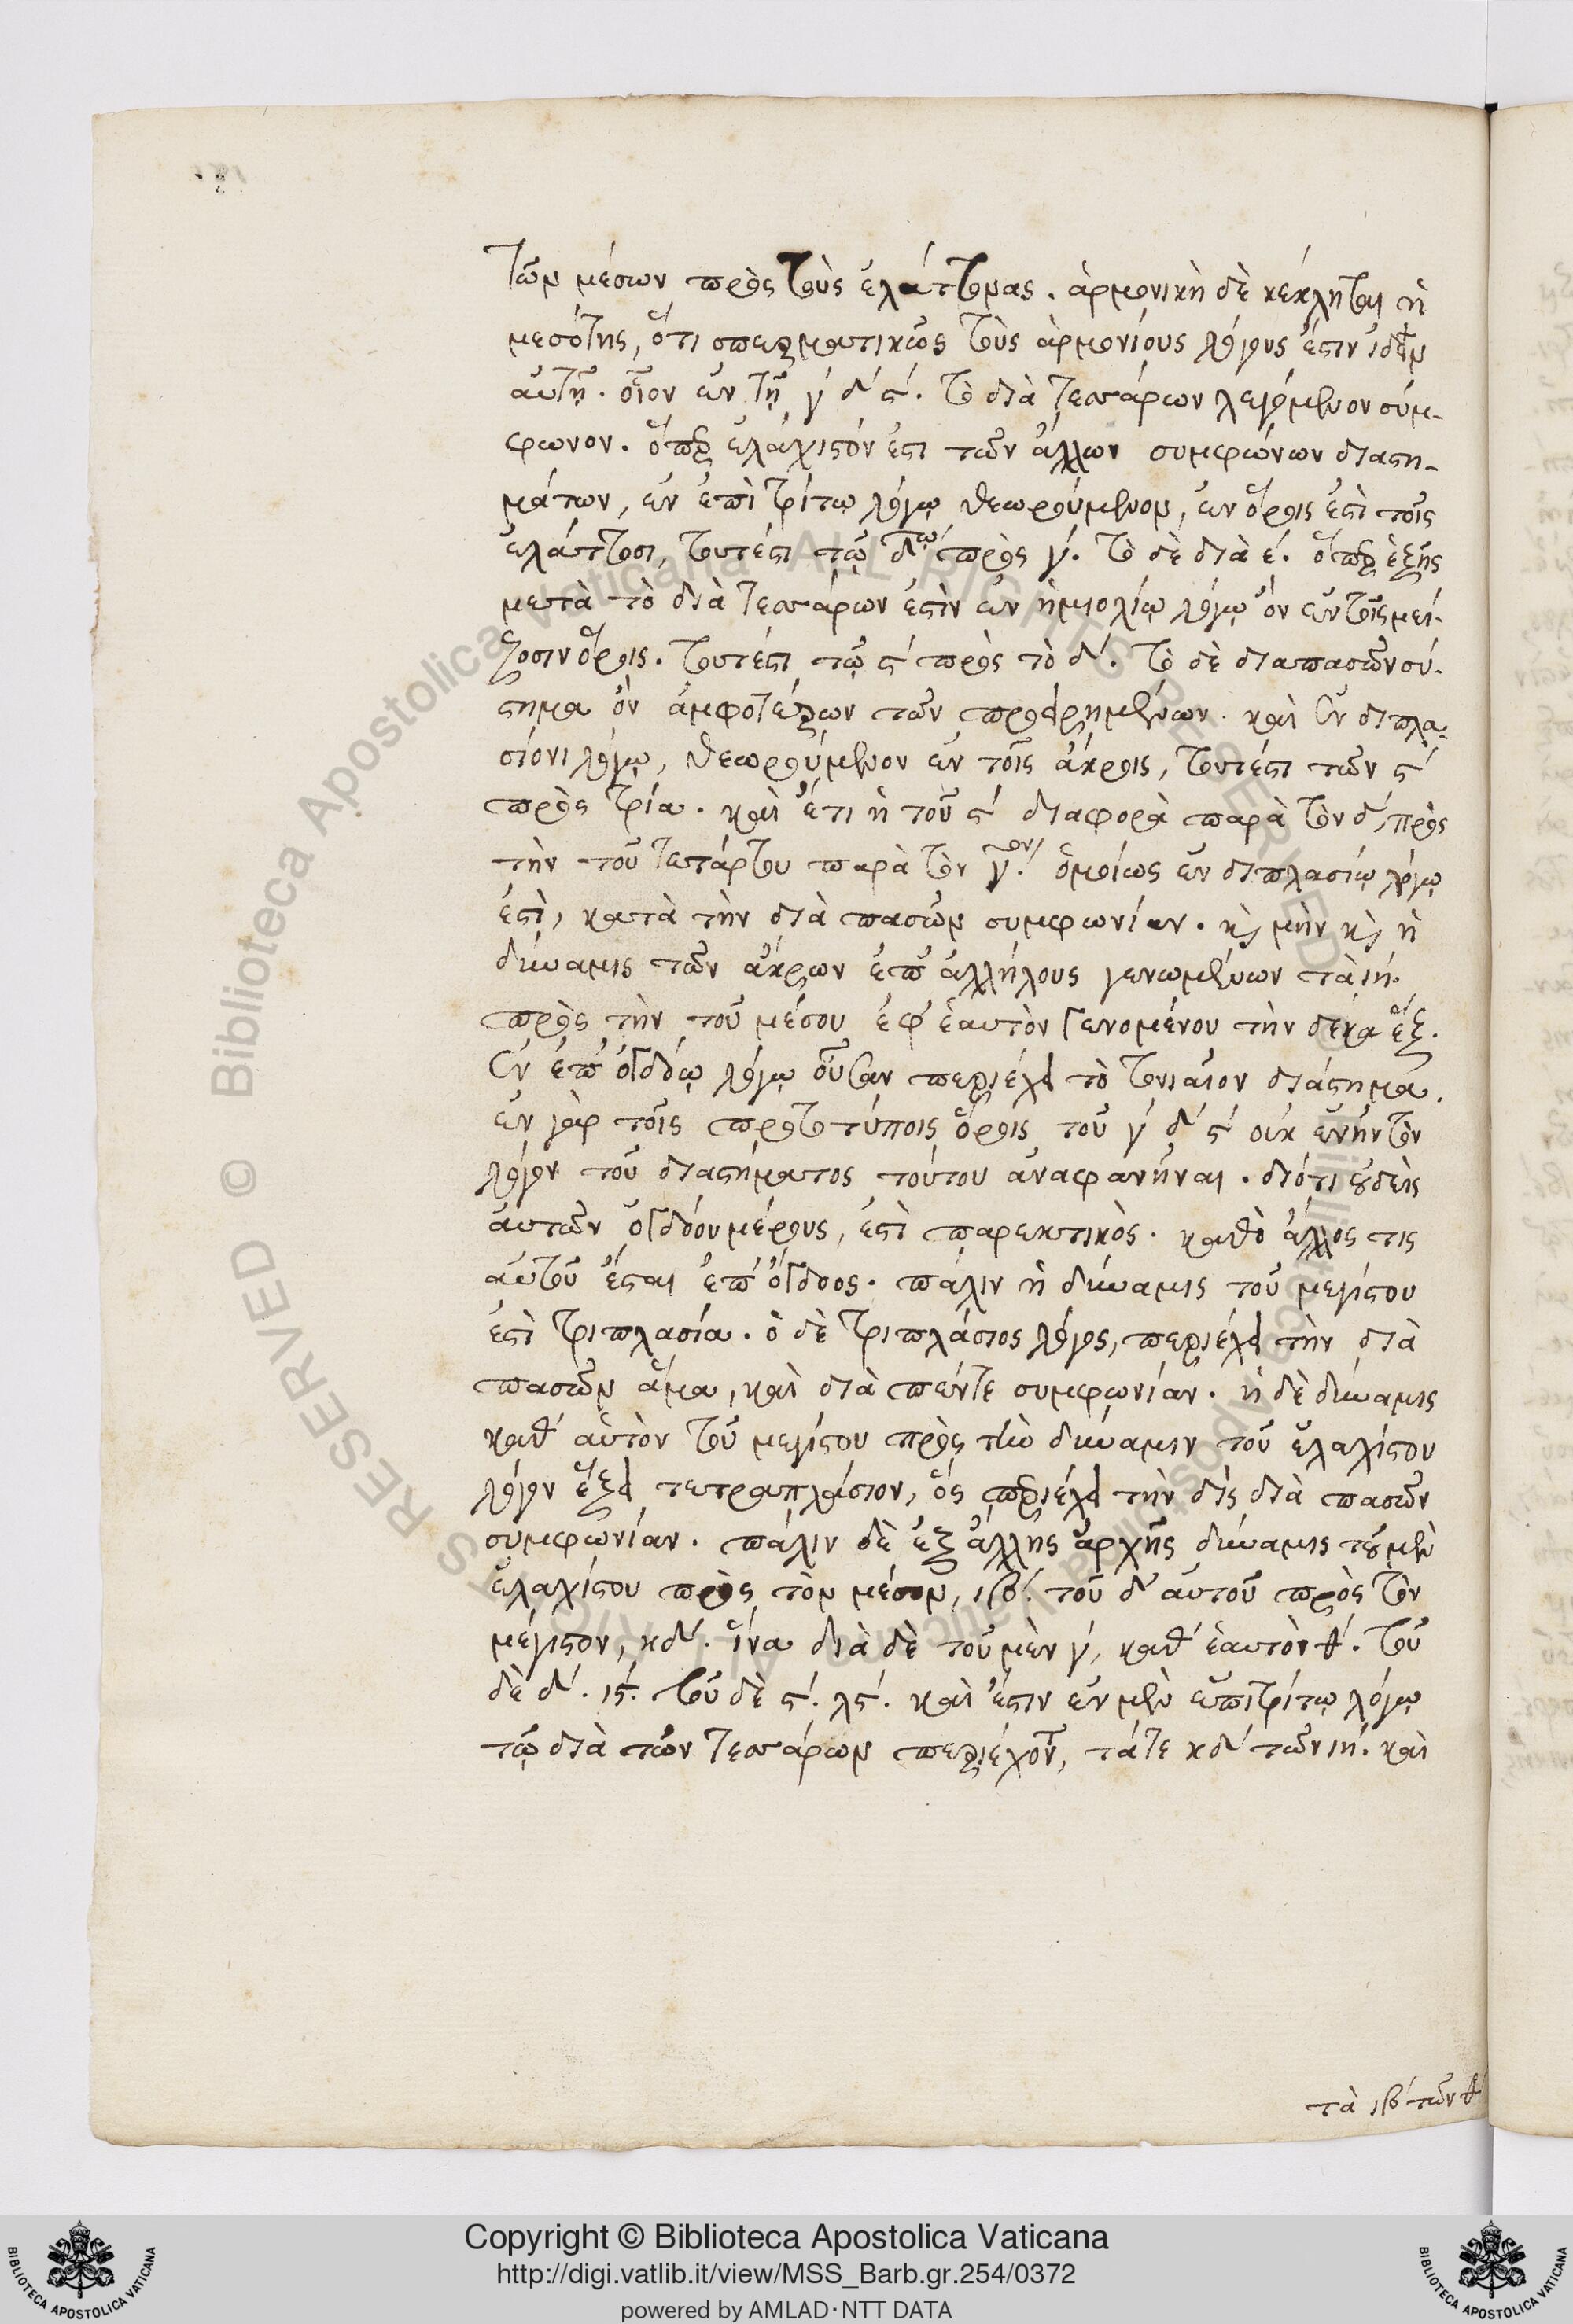 τῶν μέσων πρὸς τοὺς ἐλάττονας. ἁρμονικὴ δὲ κέκληται ἡ
μεσότης, ὅτι σπερματικῶς τοὺς ἁρμονίους λόγους ἔστιν ἰδεῖν
αὐτῇ. οἷον ἐν τῇ γ´ δ´ ς´. τὸ διὰ τεσσάρων λεγόμενον σύμ-
φωνον. ὅπερ ἐλάχιστόν ἐστι τῶν ἄλλων συμφώνων διαστη-
μάτων, ἐν ἐπὶ τρίτῳ λόγῳ θεωρούμενον, ἐν ὅροις ἐστὶ τοῖς
ἐλάττοσι, τουτέστι τῷ δτῳ´ πρὸς γ´. τὸ δὲ διὰ ε´. ὅπερ ἑξῆς
μετὰ τὸ διὰ τεσσάρων ἐστὶν ἐν ἡμιολίῳ λόγῳ ὂν ἐν τοῖς μεί-
ζοσιν ὅροις. τουτέστι τῷ ς´ πρὸς τὸ δ´. τὸ δὲ διαπασῶν σύ-
στημα ὂν ἀμφοτέρων τῶν προειρημένων. καὶ ἐν διπλα-
σίονι λόγῳ, θεωρούμενον ἐν τοῖς ἄκροις, τουτέστι τῶν ς´
πρὸς τρία. καὶ ἔτι ἡ τοῦ ς´ διαφορὰ παρὰ τὸν δ´, πρὸς
τὴν τοῦ τετάρτου παρὰ τὸν γον´. ὁμοίως ἐν διπλασίῳ λόγῳ
ἐστὶ, κατὰ τὴν διὰ πασῶν συμφωνίαν. κ̀ μὴν κ̀ ἡ
δύναμις τῶν ἄκρων ἐπ' ἀλλήλους γενωμένων τὰ ιη.
πρὸς τὴν τοῦ μέσου ἐφ' ἑαυτὸν γενομένου τὴν δεκα ἕξ.
ἐν ἐπ' ὀγδόῳ λόγῳ οὖσαν περιέχει τὸ τονιαῖον διάστημα.
ἐν γὰρ τοῖς πρωτοτύποις ὅροις τοῦ γ´ δ´ ς´ οὐκ ἐνῆν τὸν
λόγον τοῦ διαστήματος τούτου ἀναφανῆναι. διότι οὐδεὶς
αὐτῶν ὀγδόου μέρους, ἐστὶ παρεκτικὸς. καθὸ ἄλλος τις
αὐτοῦ ἔσται ἐπ' ὄγδοος. πάλιν ἡ δύναμις τοῦ μεγίστου
ἐστὶ τριπλασία. ὁ δὲ τριπλάσιος λόγος, περιέχει τὴν διὰ
πασῶν ἅμα, καὶ διὰ πέντε συμφωνίαν. ἡ δὲ δύναμις
καθ' αὑτὸν τοῦ μεγίστου πρὸς τὴν δύναμιν τοῦ ἐλαχίστου
λόγον ἕξει τετραπλάσιον, ὅς περιέχει τὴν δὶς διὰ πασῶν
συμφωνίαν. πάλιν δὲ ἐξ ἄλλης ἀρχῆς δύναμις τοῦ μὲν
ἐλαχίστου πρὸς τὸν μέσον, ιβ´. τοῦ δ' αὐτοῦ πρὸς τὸν
μέγιστον, κδ´. ἵνα διὰ δὲ τοῦ μὲν γ´, καθ' ἑαυτὸν θ´. τοῦ
δὲ δ´. ις´. τοῦ δὲ ς´. λς´. καὶ ἔστιν ἐν μὲν ἐπιτρίτῳ λόγῳ
τῷ διὰ τῶν τεσσάρων περιέχοντ, τά τε κδ´ τῶν ιη´. καὶ
τὰ ιβ´ τῶν θ´
BIBLIOTECA APOSTOLICA VATICANA
Copyright © Biblioteca Apostolica Vaticana
http://digi.vatlib.it/view/MSS_Barb.gr.254/0372
powered by AMLAD·NTT DATA
BIBLIOTECA APOSTOLICA VATICANA